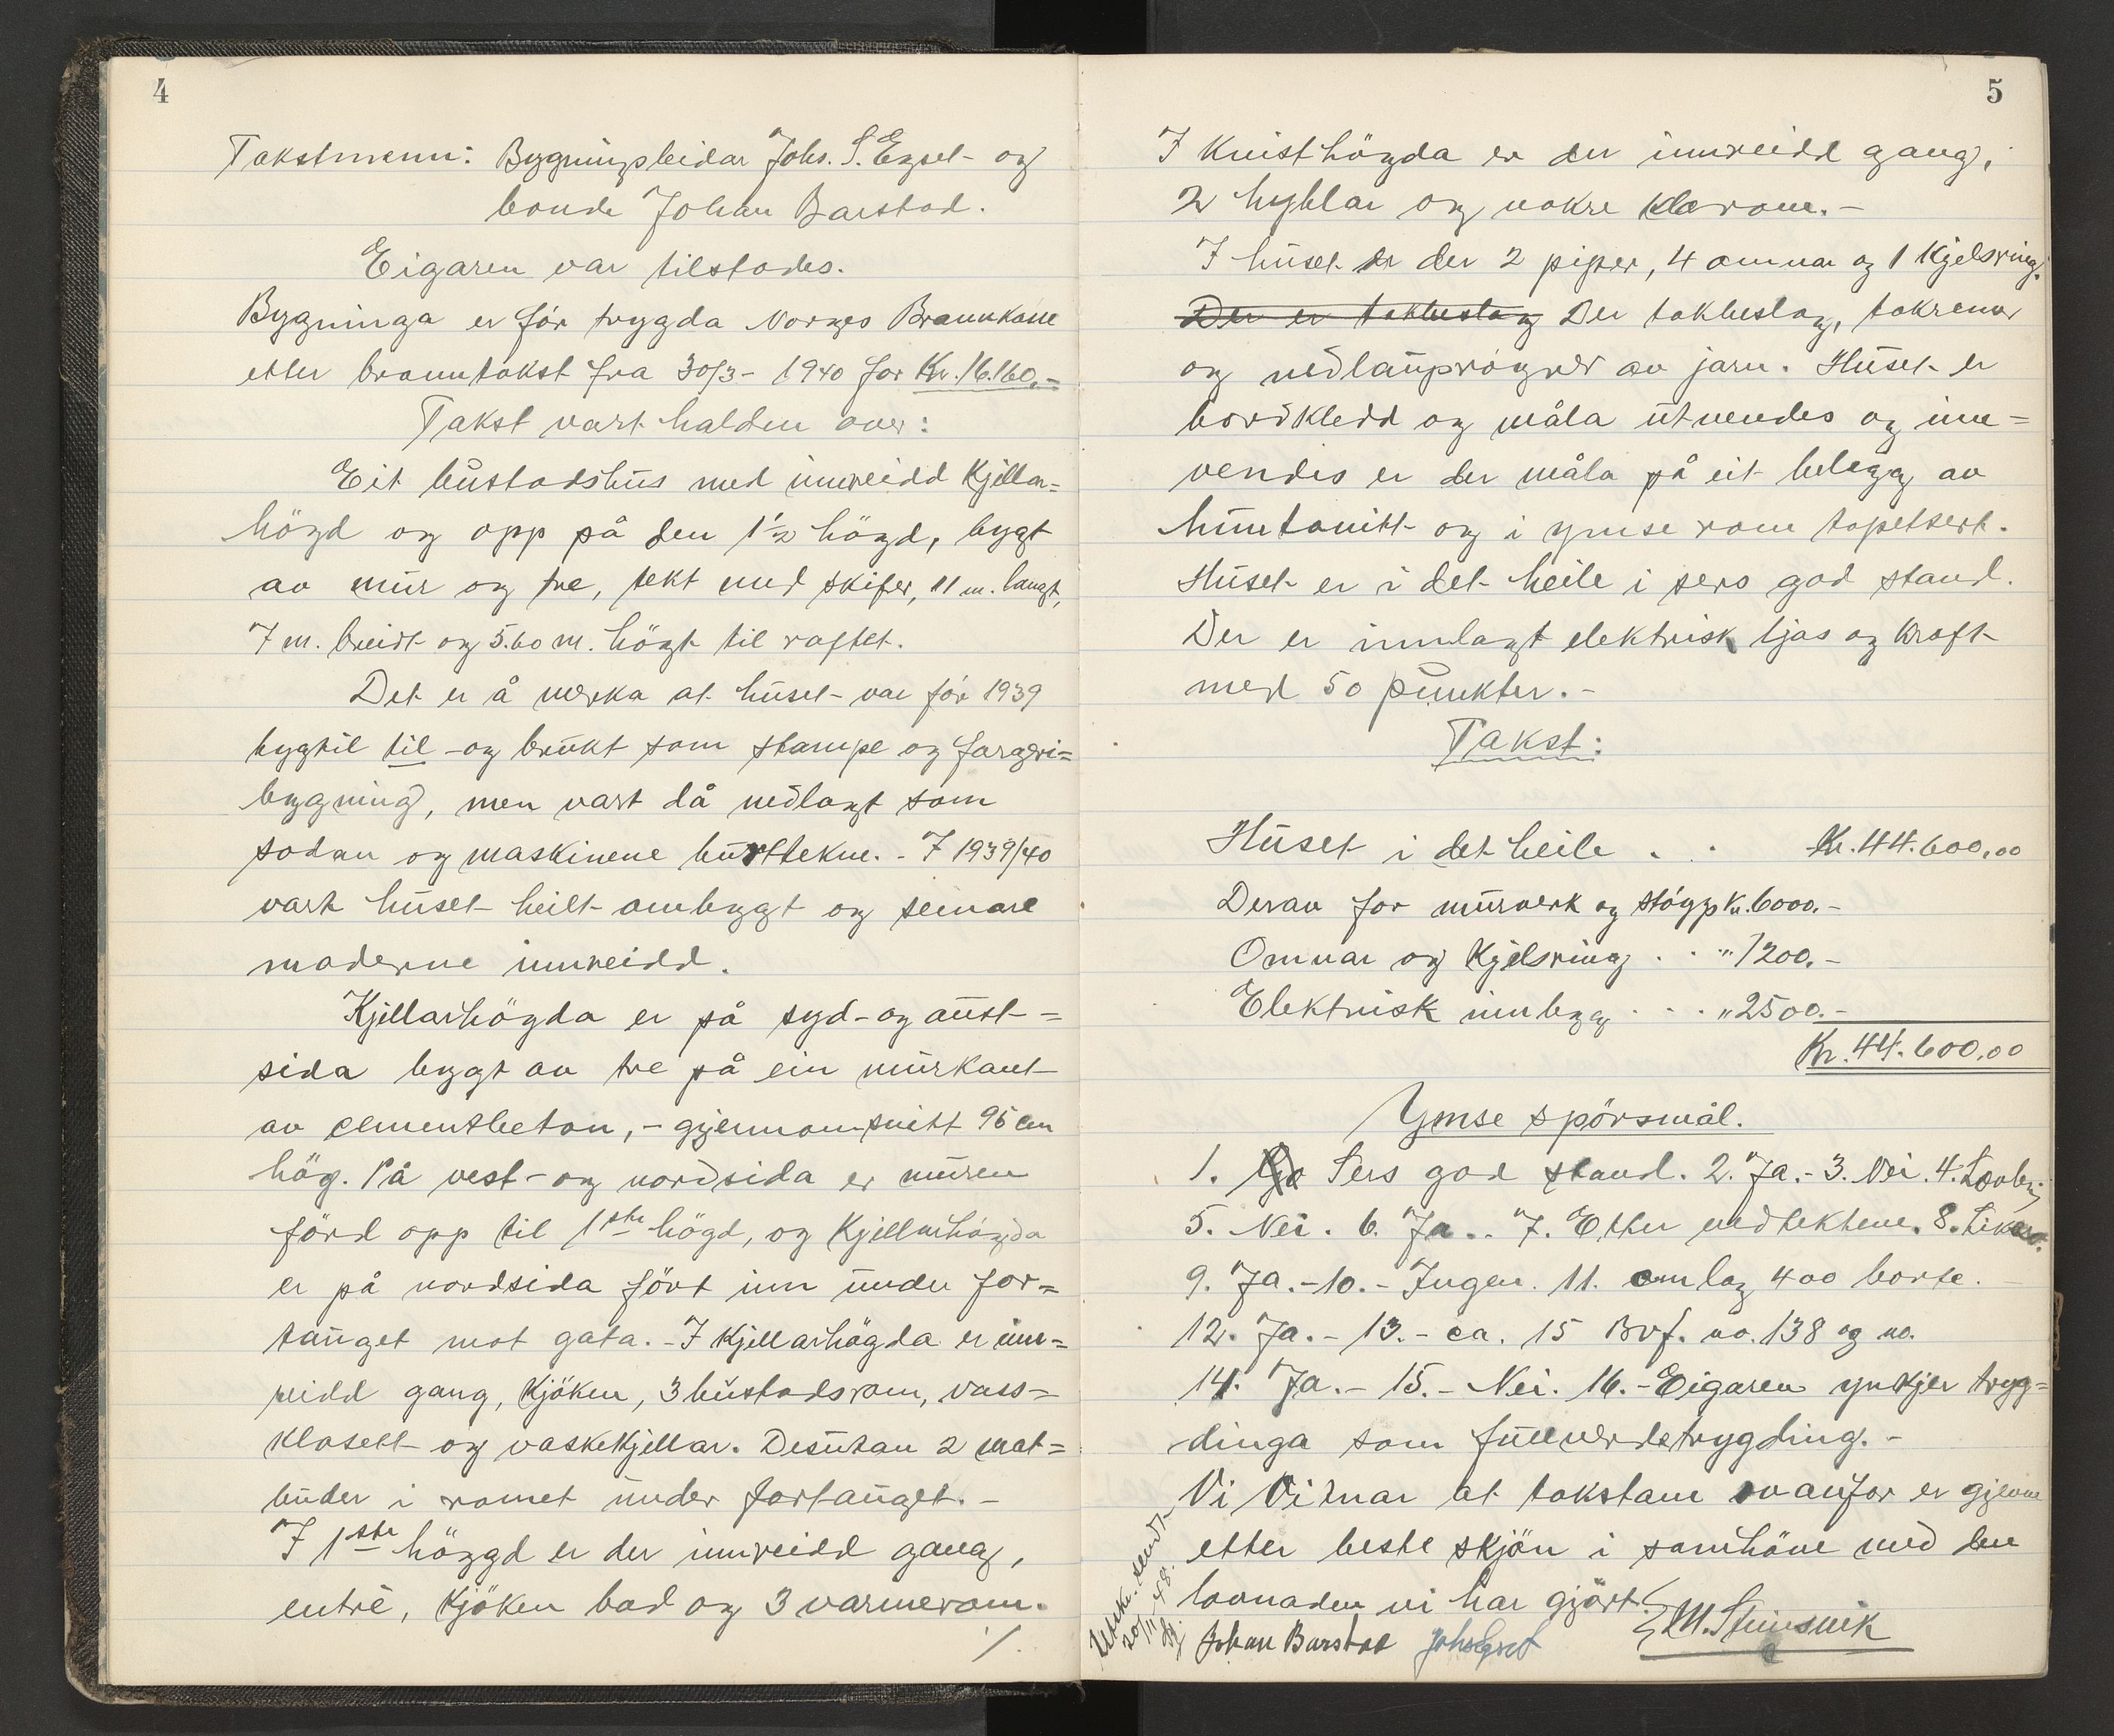 4
Takstmenn: Bygningsleidar Johs. S. Egset og
bonde Johan Barstad.
Eigaren var tilstades.
Bygninga er för trygda Norges Brannkasse
etter branntakst fra 30/3 - 1940 for Kr. 16.160.-
Takst vart halden over:
Eit bustadshus med innreidd Kjellar=
högd og opp på den 1½ högd, bygt
av mur og tre, tekt med skifer, 11 m. langt,
7 m. breidt og 5.60 m. högt til raftet.
Det er å merka at huset var för 1939
bygtil til - og brukt som stampe og fargeri=
bygning, men vart då nedlagt som
sodan og maskinene burttekne. - I 1939/40
vart huset heilt ombygt og seinare
moderne innreidd.
Kjellarhögda er på syd - og aust =
sida bygt av tre på ein murkant
av cementbeton, - gjennomsnitt 95 cm
hög. På vest - og nordsida er muren
förd opp til 1ste högd, og Kjellarhögda
er på nordsida fört inn under for=
tauget mot gata. - I Kjellarhögda er inn=
reidd gang, Kjöken, 3 bustadsrom, vass=
klosett og vaskekjellar. Desutan 2 mat=
buder i romet under fortauget. -
I 1ste höggd er der innreidd gang,
entrè, Kjöken bad og 3 varmerom.
/.
5
I Kvisthögda er der innreidd gang,
2 hyblar og nokre klerom. -
I huset er der 2 piper, 4 omnar og 1 Kjelsring.
Der er takbeslag Der takbeslag, takrenner
og nedlaupsrögner av jarn. Huset er
bordkledd og måla utvendes og inn=
vendes er der måla på eit belegg av
huntonitt og i ymse rom tapetsert.
Huset er i det heile i sers god stand.
Der er innlagt elektrisk ljos og kraft
med 50 punkter. -
Takst:
Huset i det heile . . Kr. 44.600,00
Derav for murverk og stöyp Kr. 6000.-
Omnar og Kjelsring . . " 1200.-
Elektrisk innlegg . . . " 2500.-
Kr. 44.600,00
Ymse spörsmål.
1. Go Sers god stand. 2. Ja. - 3. Nei. 4.
5. Nei. 6. Ja. . 7. Etter vedtektene. 8.
9. Ja. - 10. - Ingen. 11. omlag 400 borte.
12. Ja. - 13. - ca. 15 Bvf. no. 138 og no.
14. Ja. - 15. - Nei. 16. - Eigaren ynskjer tryg=
dinga som fullverdetrygding. -
Vi vitnar at takstane ovanfor er gjevne
etter beste skjön i samhöve med den
lovnaden vi har gjört.
Utskr. sendt
20/11-48.
Johan Barstad Johs Egset M. Steinsvik